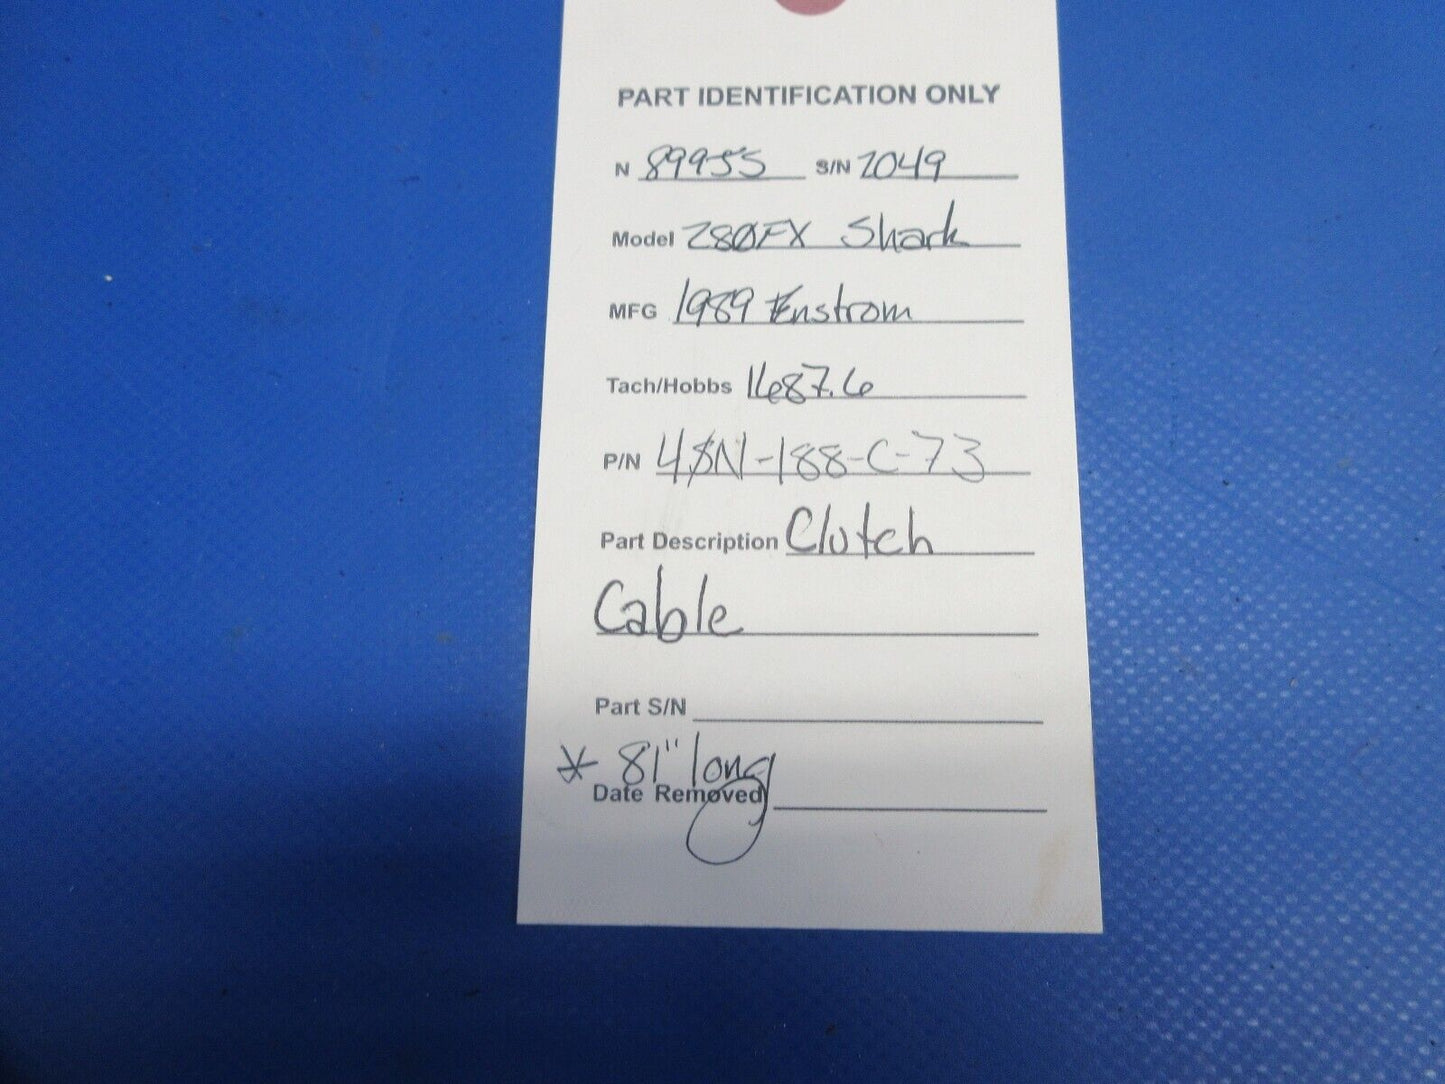 PART IDENTIFICATION ONLY
N 89955 S/N 2049
Model 280FX Shark
MFG 1989 Enstrom
Tach/Hobbs 1687.6
P/N
Part Description Clutch
Cable
Part S/N
* 81" long
Date Removed